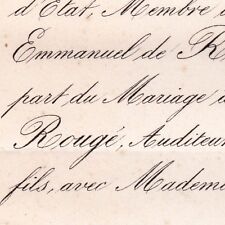 d'Etat, Membre d
Emmanuel de R
part du Mariage d
Rougé, Auditeur
fils, avec Madem